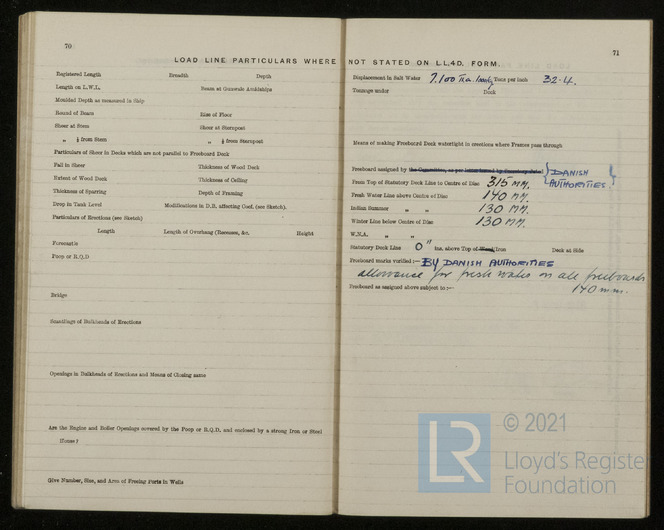 70
71
LOAD LINE PARTICULARS WHERE NOT STATED ON LL.4D. FORM.
Registered Length Breadth Depth
Length on L.W.L. Beam at Gunwale Amidships
Moulded Depth as measured in Ship
Round of Beam Rise of Floor
Sheer at Stem Sheer at Sternpost
„ ⅛ from Stem „ ⅛ from Sternpost
Particulars of Sheer in Decks which are not parallel to Freeboard Deck
Fall in Sheer Thickness of Wood Deck
Extent of Wood Deck Thickness of Ceiling
Thickness of Sparring Depth of Framing
Drop in Tank Level Modifications in D.B. affecting Coef. (see Sketch).
Particulars of Erections (see Sketch)
Length Length of Overhang (Recesses, &c. Height
Forecastle
Poop or R.Q.D
Bridge
Scantlings of Bulkheads of Erections
Openings in Bulkheads of Erections and Means of Closing same
Are the Engine and Boiler Openings covered by the Poop or R.Q.D. and enclosed by a strong Iron or Steel
House?
Give Number, Size, and Area of Freeing Ports in Wells
Displacement in Salt Water 7,100 Tons per Inch 32.4.
Tonnage under Deck
Means of making Freeboard Deck watertight in erections where Frames pass through
Freeboard assigned by the Committee, as per DANISH
AUTHORITIES
From Top of Statutory Deck Line to Centre of Disc 315 MM.
Fresh Water Line above Centre of Disc 140 MM.
Indian Summer „ „ 130 MM.
Winter Line below Centre of Disc 130 MM.
W.N.A. „ „
Statutory Deck Line 0" ins. above Top of Wood/Iron Deck at Side
Freeboard marks verified:— BY DANISH AUTHORITIES
allowance for fresh water on all freeboards
140 mm.
Freeboard as assigned above subject to:—
LR
© 2021
Lloyd's Register
Foundation